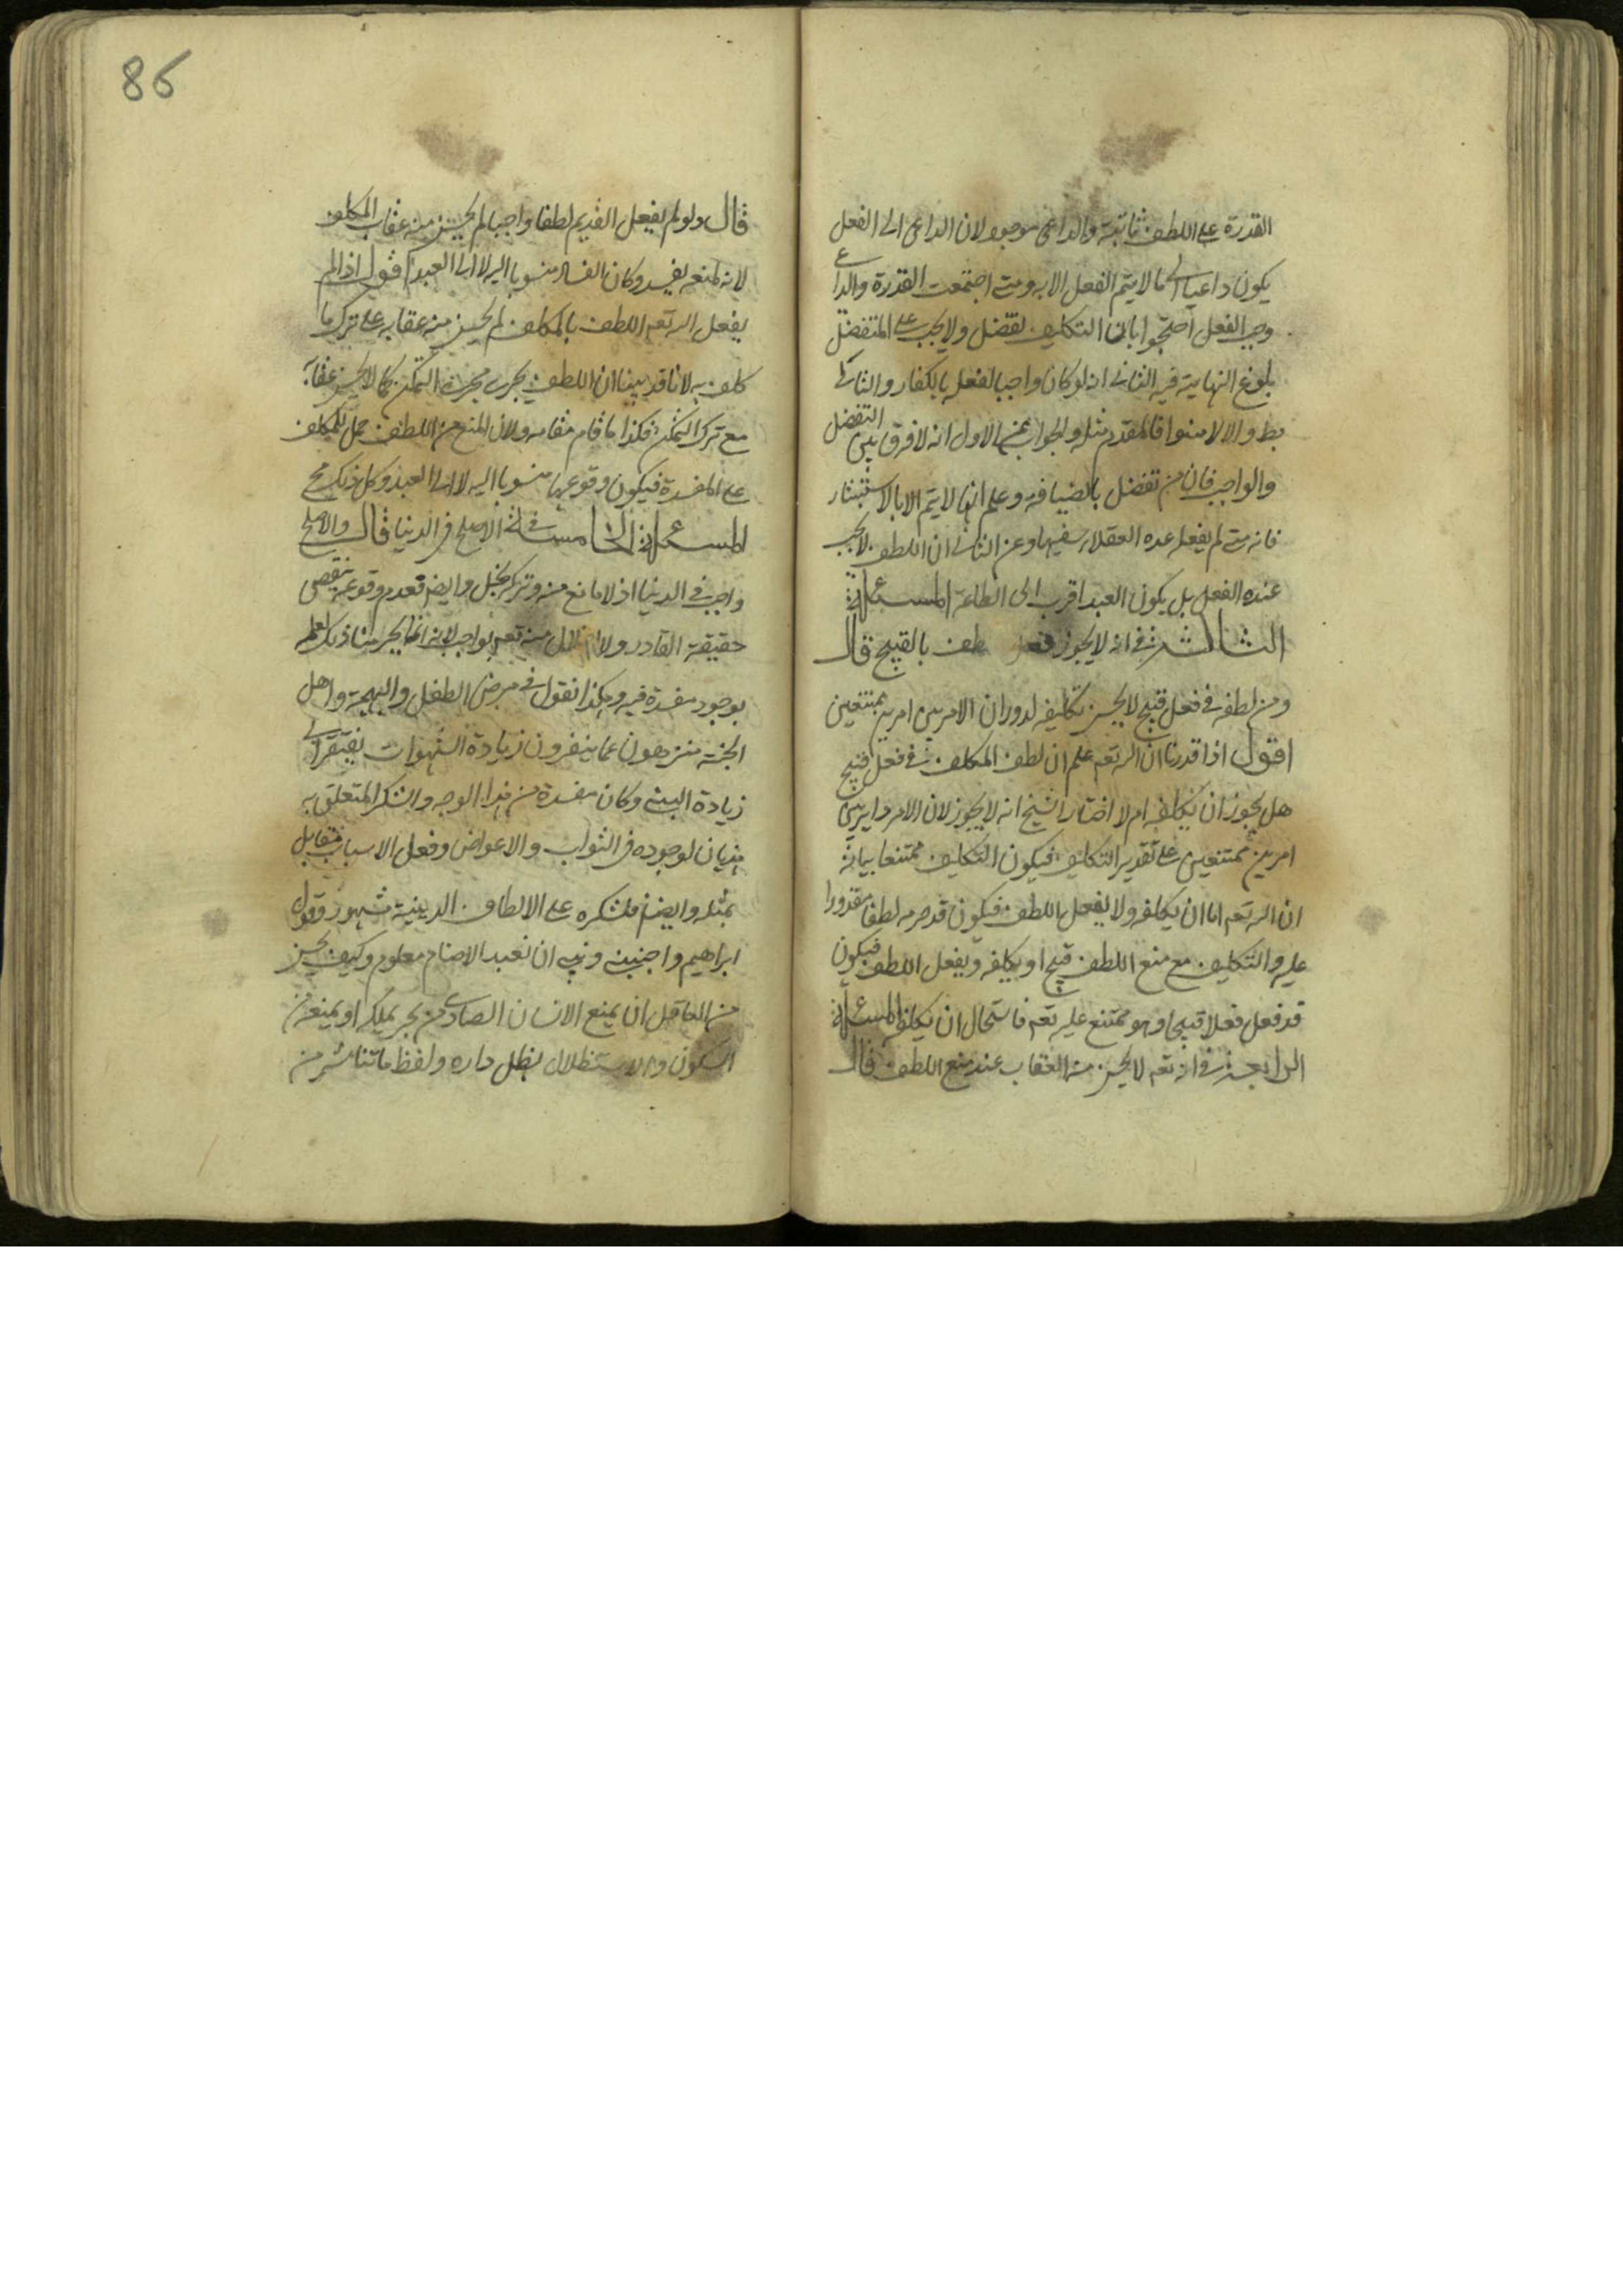 القدرة على اللطف ثابتة والداعي موجود لان الداعي الى الفعل
يكون داعيا الى ما لا يتم الفعل الا به ومتى اجتمعت القدرة والداعي
وجب الفعل احتجوا بان التكليف تفضل ولا يجب على المتفضل
بلوغ النهاية فيه الثاني انه لو كان واجبا لفعله بالكفار والتالي
بط والا لامنوا فالمقدم مثله والجواب عن الاول انه لا فرق بين التفضل
والواجب فان من تفضل بالضيافه وعلم انها لا يتم الا بالاستبشار
فانه متى لم يفعله عده العقلاء سفيها وعن الثاني ان اللطف لا يجب
عنده الفعل بل يكون العبد اقرب الى الطاعة المسئلة
الثالثة في انه لا يجوز فعل طف بالقبيح قال
ومن لطفه في فعل قبيح لا يحسن تكليفه لدوران الامر بين امرين ممتنعين
اقول اذا قدرنا ان الله تعه علم ان لطف المكلف في فعل قبيح
هل يجوز ان يكلفه ام لا اختار الشيخ انه لا يجوز لان الامر داير بين
امرين ممتنعين على تقدير التكليف فيكون التكليف ممتنعا بيانه
ان الله تعه اما ان يكلفه ولا يفعل اللطف فيكون قد حرمه لطفا مقدورا
عليه والتكليف مع منع اللطف قبيح او يكلفه ويفعل اللطف فيكون
قد فعل فعلا قبيحا وهو ممتنع عليه تعه فاستحال ان يكلفه المسئلة
الرابعة في انه تعه لا يحسن منه العقاب عند منع اللطف قال
86
قال ولو لم يفعل القديم لطفا واجبا لم يحسن منه عقاب المكلف
لانه لمنعه يفسد وكان الفساد منسوبا اليه لا الى العبد اقول اذا لم
يفعل الله تعه اللطف بالمكلف لم يحسن منه عقابه على ترك ما
كلف به لانا قد بينا ان اللطف يجري مجرى التمكن كما لا يحسن عقابه
مع ترك التمكن فكذا ما قام مقامه ولان المنع من اللطف حمل للمكلف
على المفسدة فيكون وقوعها منسوبا اليه لا الى العبد وكل ذلك مح
المسئلة الخامسة في الاصلح في الدنيا قال والاصلح
واجب في الدنيا اذ لا مانع منه وتركه بخل وايضا فعدم وقوعه ينقض
حقيقة القادر ولا منه تعه بواجب لانه انما يحسن منا ذلك لعلمه
بوجود مفسدة فيه وهكذا نقول في مرض الطفل والبهيمة واهل
الجنة منزهون عما ينفرون زيادة الشهوات يفتقر الى
زيادة البنية وكان مفسدة من هذا الوجه والشكر المتعلق به
هذيان لوجوده في الثواب والاعواض وفعل الاسباب مقابل
بمثله وايضا فلشكره على الالطاف الدينية مشهور وقول
ابراهيم واجنبني وبني ان نعبد الاصنام معلوم وكيف يحسن
من العاقل ان يمنع الانسان الصادي من بحر يملكه او يمنعه من
السكون والاستظلال بظل داره ولفظ ما تناثر من